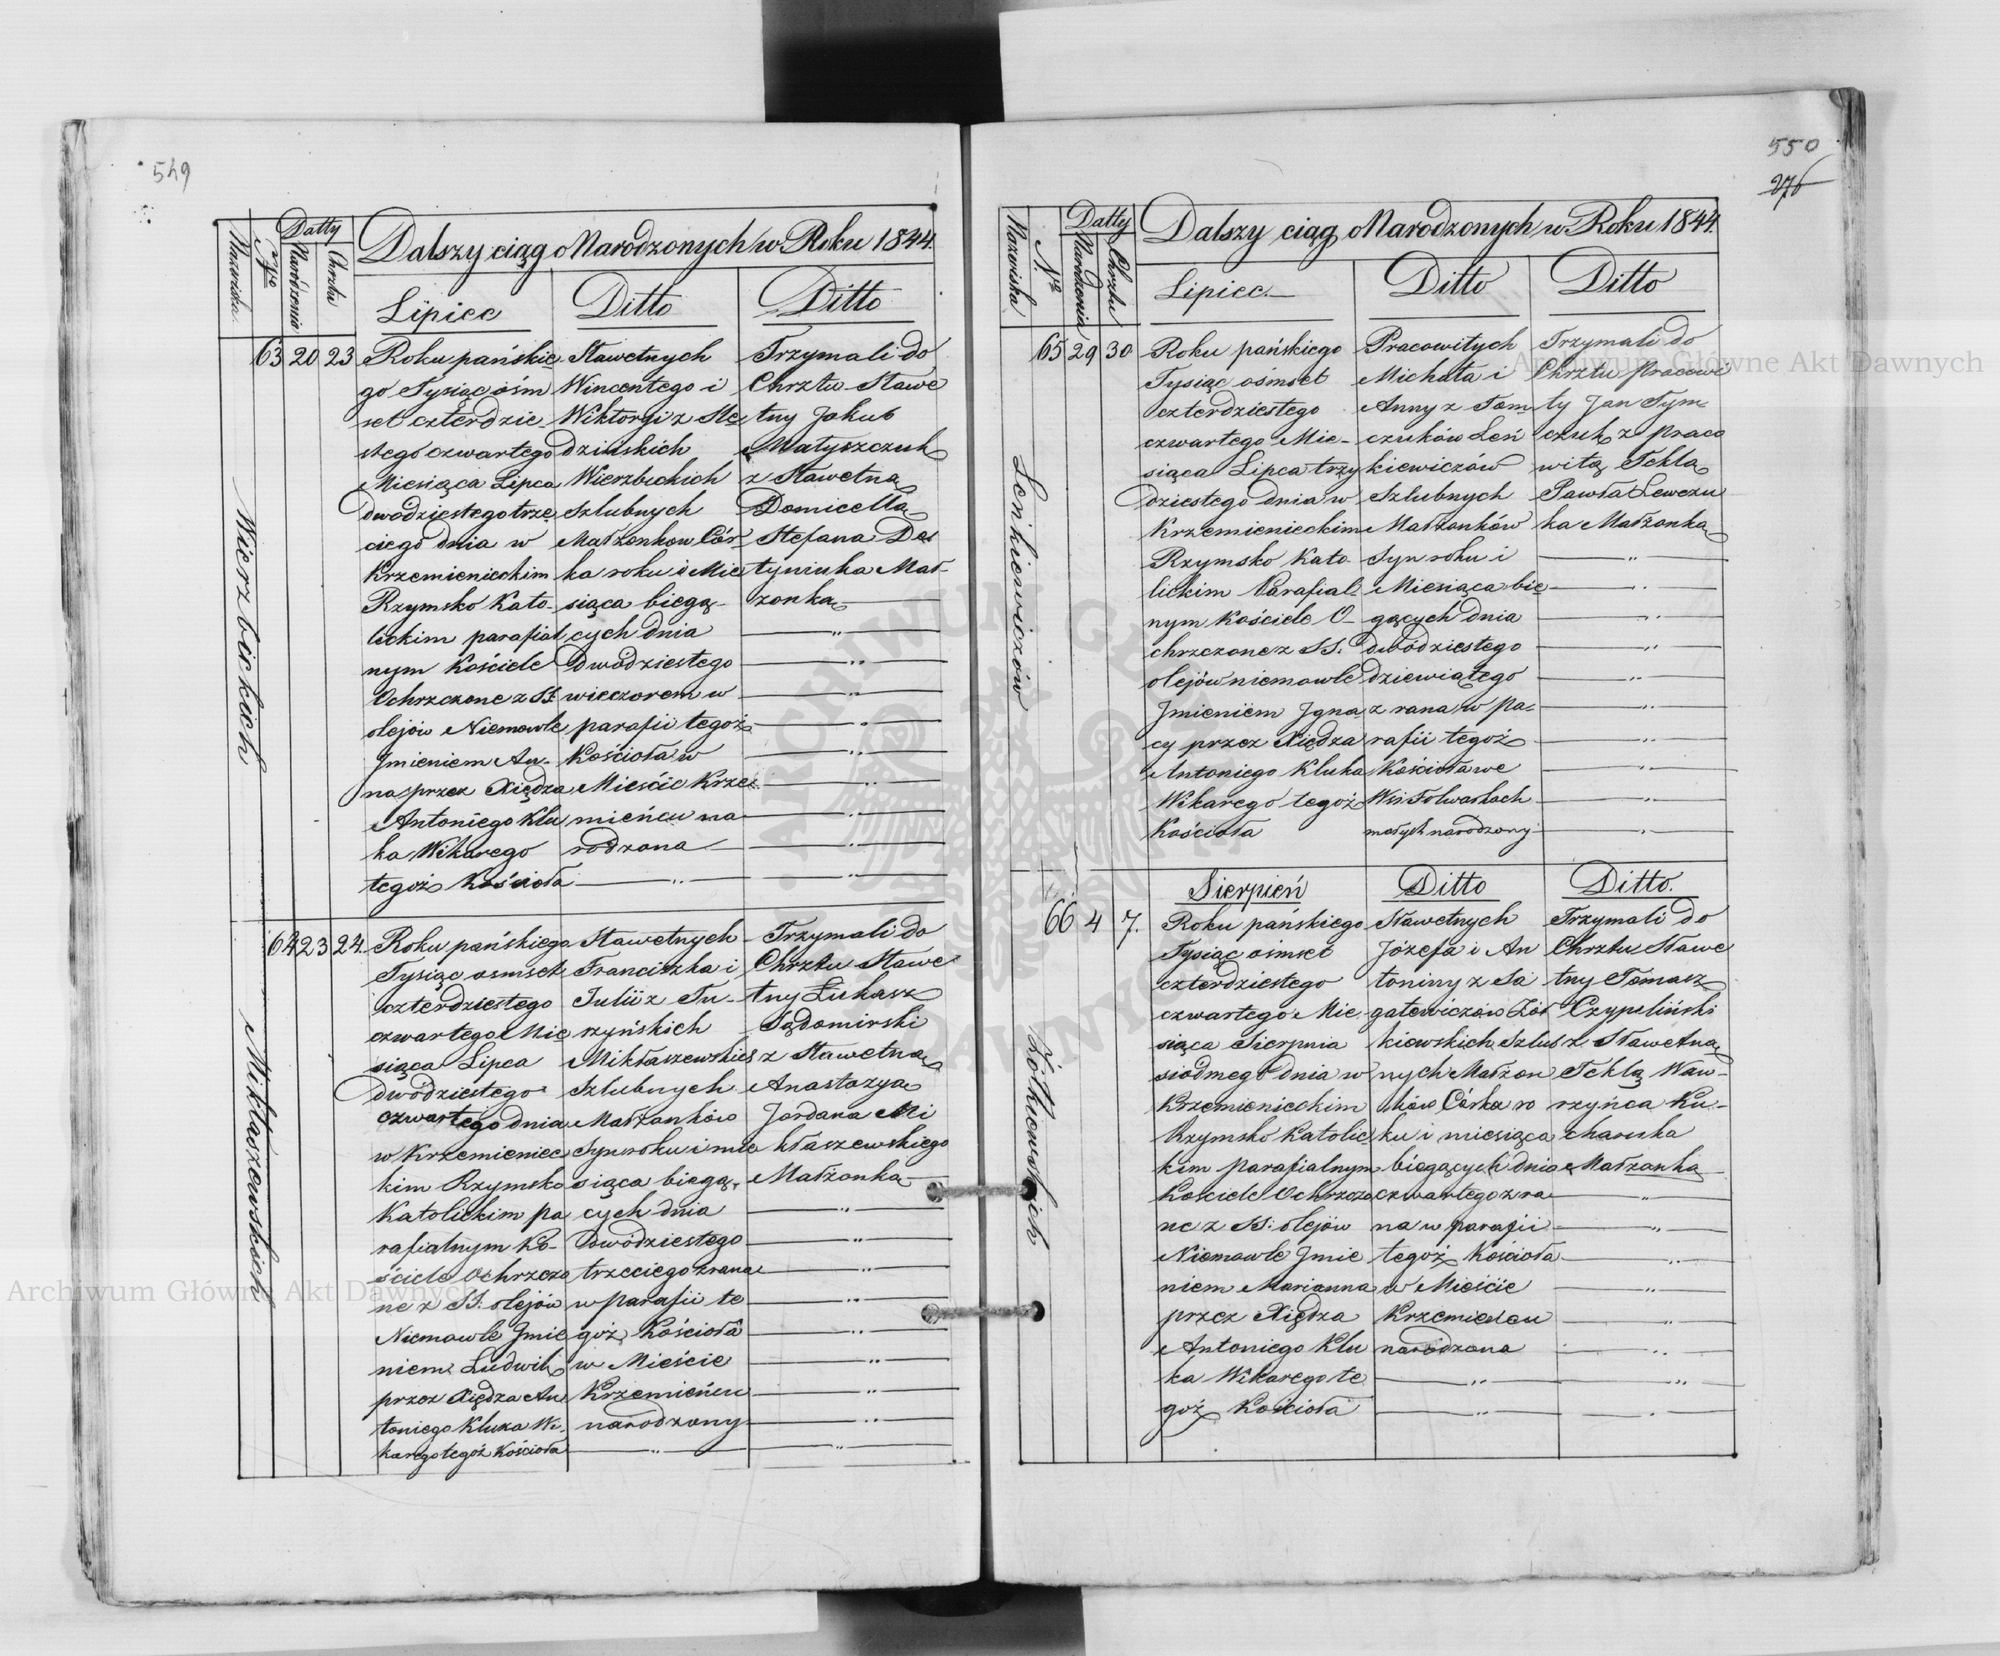 549
Dalszy ciąg Narodzonych w Roku 1844.
Datty
Nazwiska
Nro
Narodzenia
Chrztu
Lipiec
Ditto
Ditto
63 20 23
Wierzbickich
Roku pańskie
go Tysiąc ośm
set czterdzie-
stego czwartego
Miesiąca Lipca
dwódziestego trze
ciego dnia w
Krzemienieckim
Rzymsko Kato-
lickim parafial
nym Kościele
Ochrzczone z SS.
olejów Niemowle
Jmieniem An-
na przez Xiędza
Antoniego Klu
ka Wikarego
tegoż Kościoła
Sławetnych
Wincentego i
Wiktoryi z Ste
dzińskich
Wierzbickich
Szlubnych
Małżonkow Cór-
ka roku i Mie
siąca biegą-
cych dnia
Dwódziestego
wieczorem w
parafii tegoż
Kościoła w
Mieście Krze-
mieńcu na
rodzona
Trzymali do
Chrztu Sławe
tny Jakub
Matyszczuk
z Sławetną
Domicellą
Stefana De
tyniuka Mał-
żonką
64 23 24.
Mikłaszewskich
Roku pańskiego
Tysiąc osmset
czterdziestego
czwartego Mie
siąca Lipca
dwódziestego
czwartego dnia
w Krzemieniec
kim Rzymsko
Katolickim pa
rafialnym Ko-
ściele Ochrzczo
ne z SS. olejów
Niemowle Jmie
niem Ludwik
przez Xiędza An
toniego Kluka Wi-
karego tegoż Kościoła
Sławetnych
Franciszka i
Julii z Tu-
rzyńskich
Mikłaszewskich
Szlubnych
Małżonków
Syn roku i mie
siąca biegą-
cych dnia
Dwódziestego
trzeciego z rana
w parafii te
goż Kościoła
w Mieście
Krzemieńcu
narodzony
Trzymali do
Chrztu Sławe
tny Łukasz
Sądomirski
z Sławetną
Anastazyą
Jordana Mi
kłaszewskiego
Małżonką
550
276
Dalszy ciąg Narodzonych w Roku 1844.
Datty
Nazwiska
Nro
Narodzenia
Chrztu
Lipiec.
Ditto
Ditto
65 29 30
Lenkiewiczów
Roku pańskiego
Tysiąc ośmset
czterdziestego
czwartego Mie-
siąca Lipca trzy
dziestego dnia w
Krzemienieckim
Rzymsko Kato-
lickim Parafial-
nym Kościele O-
chrzczone z SS.
olejów niemowle
Jmieniem Jgna-
cy przez Xiędza
Antoniego Kluka
Wikarego tegoż
Kościoła
Pracowitych
Michała i
Anny z Tom
czuków Leń
kiewiczów
Szlubnych
Małżonków
Syn roku i
Miesiąca bie
gących dnia
dwódziestego
dziewiątego
z rana w pa-
rafii tegoż
Kościoła we
Wsi Folwarkach
małych narodzony
Trzymali do
Chrztu pracowi
ty Jan Tym-
czuk z praco
witą Teklą
Pawła Lewczu
ka Małżonką
Sierpień
Ditto
Ditto.
66 4 7.
Żółkiewskich
Roku pańskiego
Tysiąc ośmset
czterdziestego
czwartego Mie-
siąca Sierpnia
siódmego dnia w
Krzemienieckim
Rzymsko Katolic-
kim parafialnym
Kościele Ochrzczo
ne z SS: olejów
Niemowle Jmie
niem Marianna
przez Xiędza
Antoniego Klu
ka Wikarego te
goż Kościoła
Sławetnych
Józefa i An
toniny z Sa
gatowiczów Żół
kiewskich Szlub
nych Małżon
ków Córka ro
ku i miesiąca
biegących dnia
czwartego z ra
na w parafii
tegoż Kościoła
w Mieście
Krzemieńcu
narodzona
Trzymali do
Chrztu Sławe
tny Tomasz
Czypeliński
z Sławetną
Teklą Waw-
rzyńca Ku-
charska
Małżonką
Archiwum Główne Akt Dawnych
Archiwum Główne Akt Dawnych